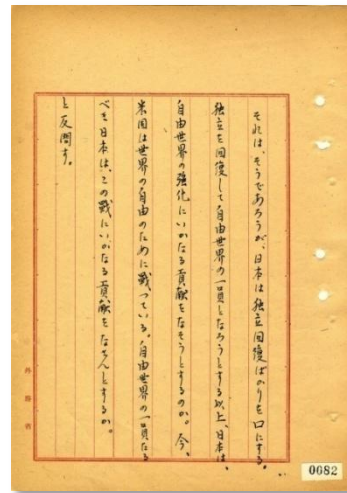 それは、そうであろうが、日本は独立回復ばかりを口にする。
独立を回復して自由世界の一員となろうとする以上、日本は、
自由世界の強化にいかなる貢献をなそうとするのか。今、
米国は世界の自由のために戦っている。自由世界の一員たる
べき日本は、この戦にいかなる貢献をなさんとするか。
と反問す。
外務省
0682